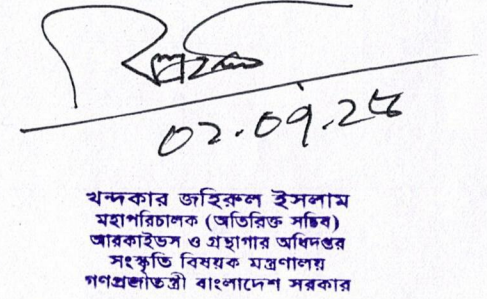 ০২.০৭.২৫
খন্দকার জহিরুল ইসলাম
মহাপরিচালক (অতিরিক্ত সচিব)
আরকাইভস ও গ্রন্থাগার অধিদপ্তর
সংস্কৃতি বিষয়ক মন্ত্রণালয়
গণপ্রজাতন্ত্রী বাংলাদেশ সরকার